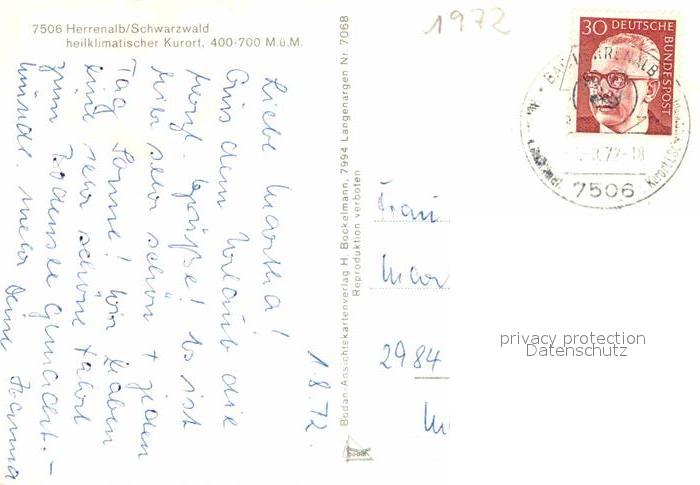 7506 Herrenalb/Schwarzwald
heilklimatischer Kurort, 400-700 M.ü.M.
1972
30 DEUTSCHE BUNDESPOST
BAD HERRENALB
.8.72-18
7506
1.8.72.
Liebe Martha!
Aus dem Urlaub die
herzl. Grüße! Es ist
hier sehr schön + jeden
Tag Sonne! Wir haben
eine sehr schöne Fahrt
zum Bodensee gemacht. –
mündl. mehr Deine Joanna
Bodan-Ansichtskartenverlag H. Bockelmann, 7994 Langenargen Nr. 7068
Reproduktion verboten
bodan
Frau
Mar
2984
privacy protection
Datenschutz